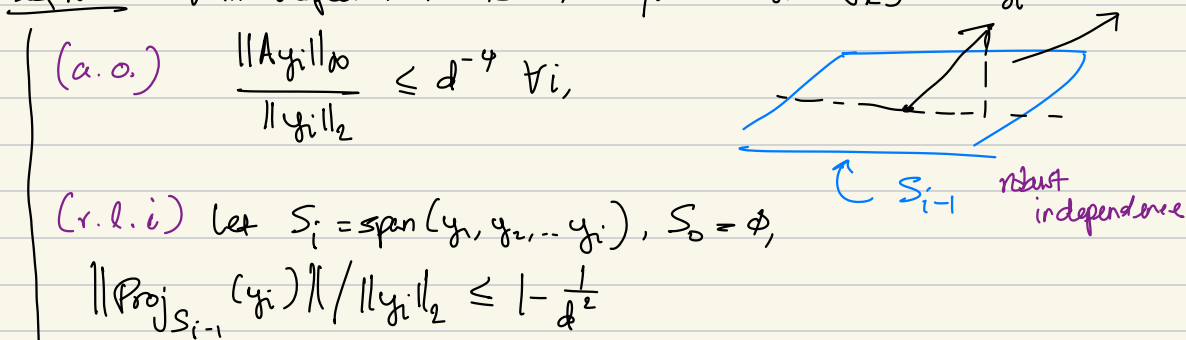 (a.o.) ||Ay_i||_∞ / ||y_i||_2 ≤ d^{-4} ∀i,
S_{i-1} robust
independence
(r.l.i) Let S_i = span(y_1, y_2, .. y_i), S_0 = ∅,
||Proj_{S_{i-1}}(y_i)|| / ||y_i||_2 ≤ 1 - 1/d^2